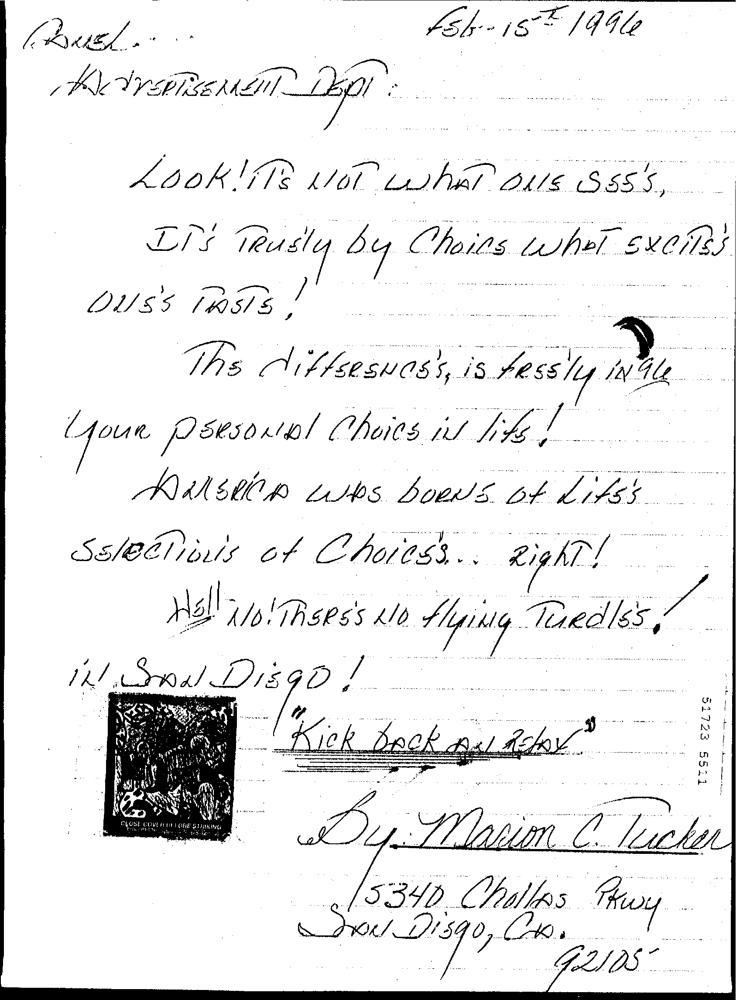 Feb-15th 1996
Camel....
Advertisement Dept:
Look! it's not what one see's,
It's Truely by Choice what excites's
one's Taste!
The differences's, is free'ly in 96
your personal Choice in life!
America was borne of Life's
Selections's of Choices's... Right!
Hell No! There's No flying Turdles's!
in San Diego!
"Kick back an Relax"
51723 5511
CLOSE COVER BEFORE STRIKING
By: Marion C. Tucker
5340 Chollas Pkwy
San Diego, Ca.
92105